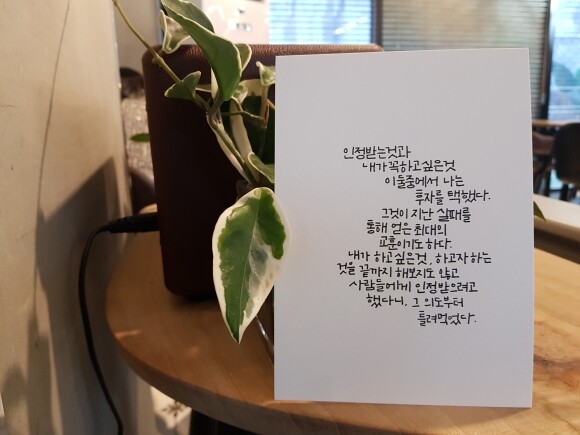 인정받는것과
내가 꼭하고싶은것
이 둘중에서 나는
투자를 택했다.
그것이 지난 실패를
통해 얻은 최대의
교훈이기도 하다.
내가 하고싶은것, 하고자 하는
것을 끝까지 해보지도 않고
사람들에게 인정받으려고
했다니, 그 의도부터
틀려먹었다.